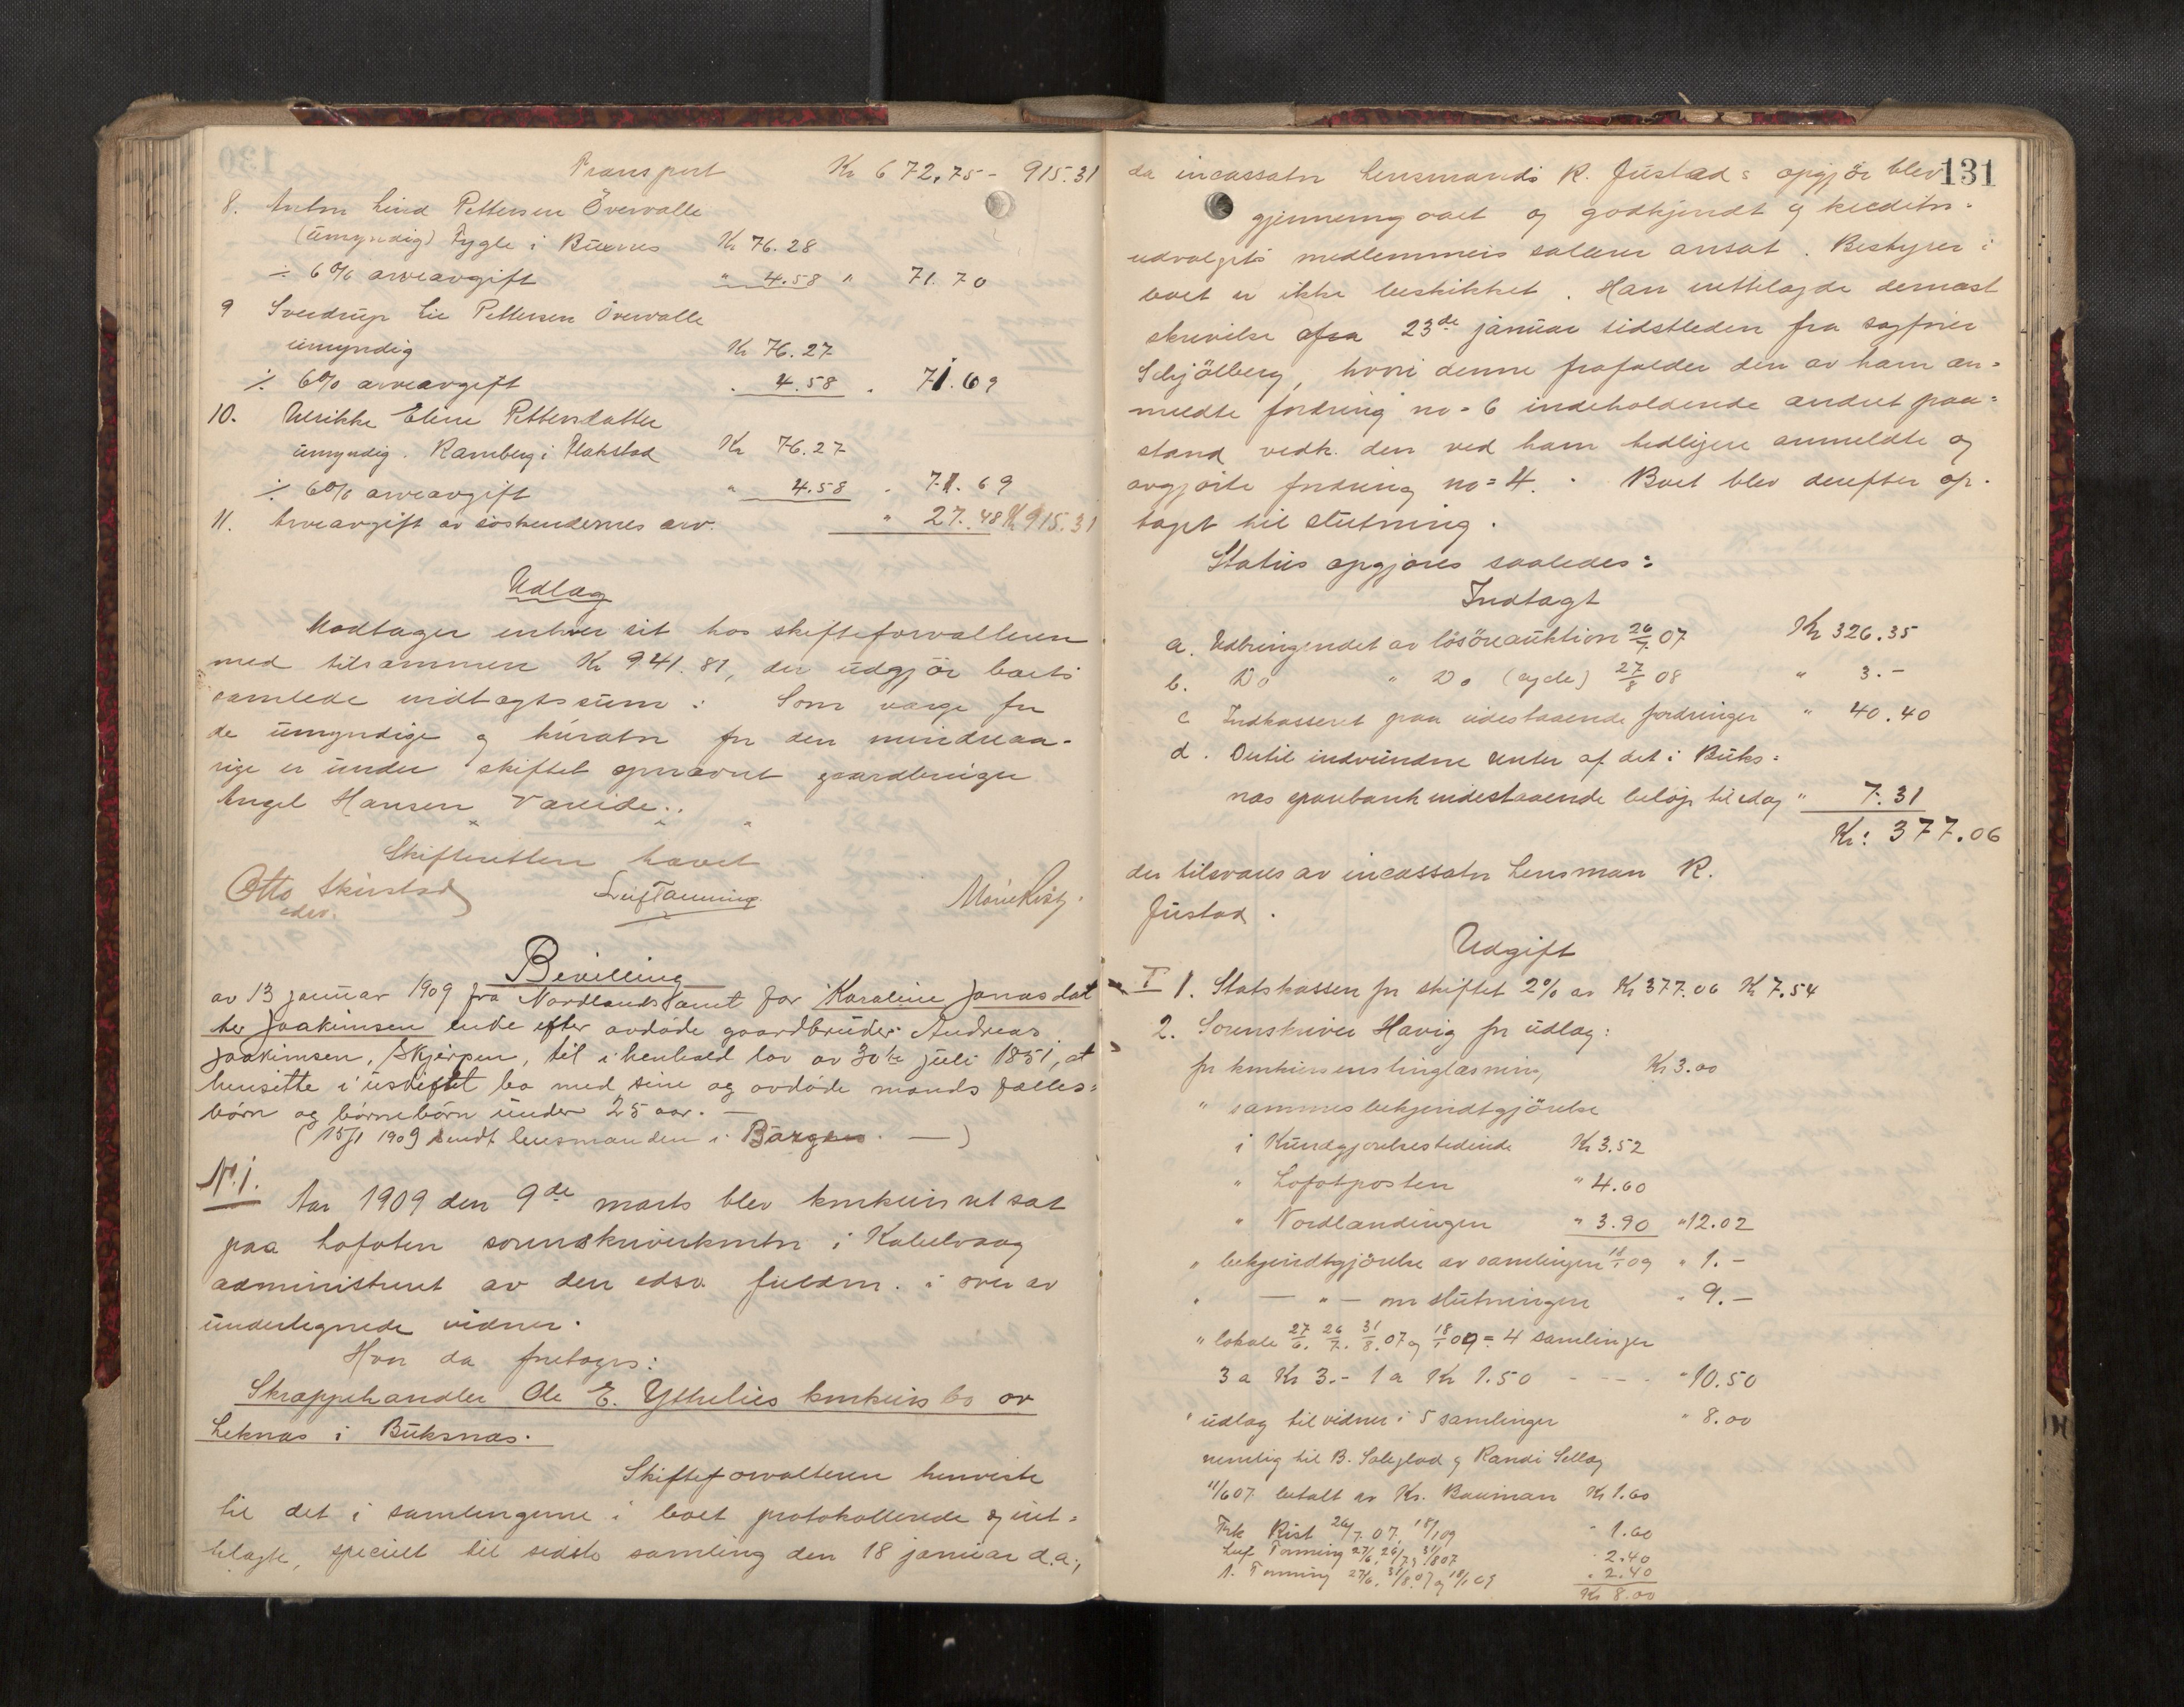 Transport Kr 672.75 - 915.31
8. Anton Lind Pettersen Övervolle
(umyndig) Fygle i Buxnes Kr 76.28
÷ 6% arveavgift " 4.58 " 71.70
9 Sverdrup Lie Pettersen Övervolle
umyndig Kr 76.27
÷ 6% arveavgift . 4.58 . 71.69
10. Ulrikke Eline Pettersdatter
umyndig. Ramberg i Flakstad Kr 76.27
÷ 6% arveavgift " 4.58 . 71.69
11. Arveavgift av söskendernes arv. " 27.48 Kr 915.31
Udlæg
Modtager enhver sit hos skifteforvalteren
med tilsammen Kr 941.81, der udgjör boets
samlede indtægtssum. Som værge for
de umyndige og kurator for den mindreaa-
rige er under skiftet opnævnt gaardbruger
Angel Hansen
Skifteretten hævet
Otto Skirstad
edsv.
Leif Tønning
Marie Rist.
Bevilling
av 13 januar 1909 fra Nordlands amt for Karoline Jonasdat
ter Joakimsen enke efter avdöde gaardbruder Andreas
Joakimsen, Skjerpen, til i henhold lov av 30te juli 1851, at
hensitte i uskiftet bo med sine og avdöde mands fælles=
börn og börnebörn under 25 aar. —
(15/1 1909 sendt lensmanden i . —)
No. 1.
Aar 1909 den 9de marts blev konkursret sat
paa Lofoten sorenskriverkontor i Kabelvaag
administreret av den edsv. fuldm. i over av
undertegnede vidner.
Hvor da foretoges:
Skraphandler Ole E. Ytrelies konkurs bo av
Leknæs i Buksnæs.
Skifteforvalteren henviste
til det i samlingerne i boet protokollerede og ret=
telagte, specielt til sidste samling den 18 januar d.a.,
131
da incassator lensmand R. Justad s opgjör blev
gjennemgaaet og godkjendt og kreditor=
udvalgets medlemmers salær ansat. Bestyrer i
boet er ikke beskikket. Han rettelagde dernæst
skrivelse fra 23de januar sidstleden fra sagförer
Schjölberg, hvori denne frafalder den av ham an=
meldte fordring no=6 indeholdende ændret paa=
stand vedk. den ved ham tidligere anmeldte og
avgjorte fordring no=4. Boet blev derefter op-
taget til slutning.
Status opgjöres saaledes:
Indtægt
a. Udbringendet av lösöreauktion 26/7 07 Kr 326.35
b. Do " Do (cycle) 27/8 08 " 3.-
c Indkasseret paa udestaaende fordringer " 40.40
d. Dertil indvundne renter af det i Buks=
næs sparebank indestaaende belöp til idag " 7.31
Kr: 377.06
der tilsvares av incassator Lensman R.
Justad.
Udgift
I 1. Statskassen for skiftet 2% av Kr 377.06 Kr 7.54
2. Sorenskriver Havig for udlæg:
for konkursens tinglæsning Kr 3.00
" sammes bekjendtgjörelse
i Kundgjörelsestidende Kr 3.52
" Lofotposten " 4.60
" Nordlændingen " 3.90 " 12.02
" bekjendtgjörelse av samlingen 18/1 09 " 1.-
" — " — om slutningen " 9.-
" lokale 27/6. 26/7. 31/8.07 og 18/1 09 = 4 samlinger
3 a Kr 3.- 1 a Kr 1.50 - - - " 10.50
" udlæg til vidner i 5 samlinger " 8.00
nemlig til B. og Randi
11/6 07 betalt av Kr. Kr 1.60
Frk Rist 26/7.07, 18/1 09 " 1.60
Leif Tønning 27/6, 26/7, 31/8 07 " 2.40
A. Tønning 27/6, 31/8.07 og 18/1 09 " 2.40
Kr 8.00